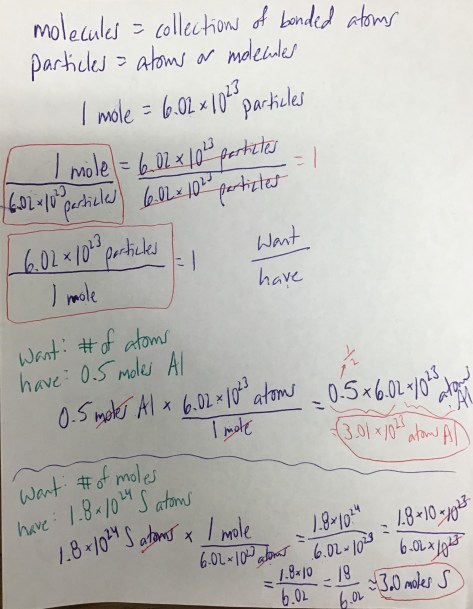 molecules = collections of bonded atoms
particles = atoms or molecules
1 mole = 6.02 × 10²³ particles
1 mole / 6.02 × 10²³ particles = 6.02 × 10²³ particles / 6.02 × 10²³ particles = 1
6.02 × 10²³ particles / 1 mole = 1
Want / have
Want: # of atoms
have: 0.5 moles Al
1/2
0.5 moles Al × 6.02 × 10²³ atoms / 1 mole = 0.5 × 6.02 × 10²³ atoms Al
= 3.01 × 10²³ atoms Al
Want: # of moles
have: 1.8 × 10²⁴ S atoms
1.8 × 10²⁴ S atoms × 1 mole / 6.02 × 10²³ atoms = 1.8 × 10²⁴ / 6.02 × 10²³ = 1.8 × 10 × 10²³ / 6.02 × 10²³
= 1.8 × 10 / 6.02 = 18 / 6.02 = 3.0 moles S